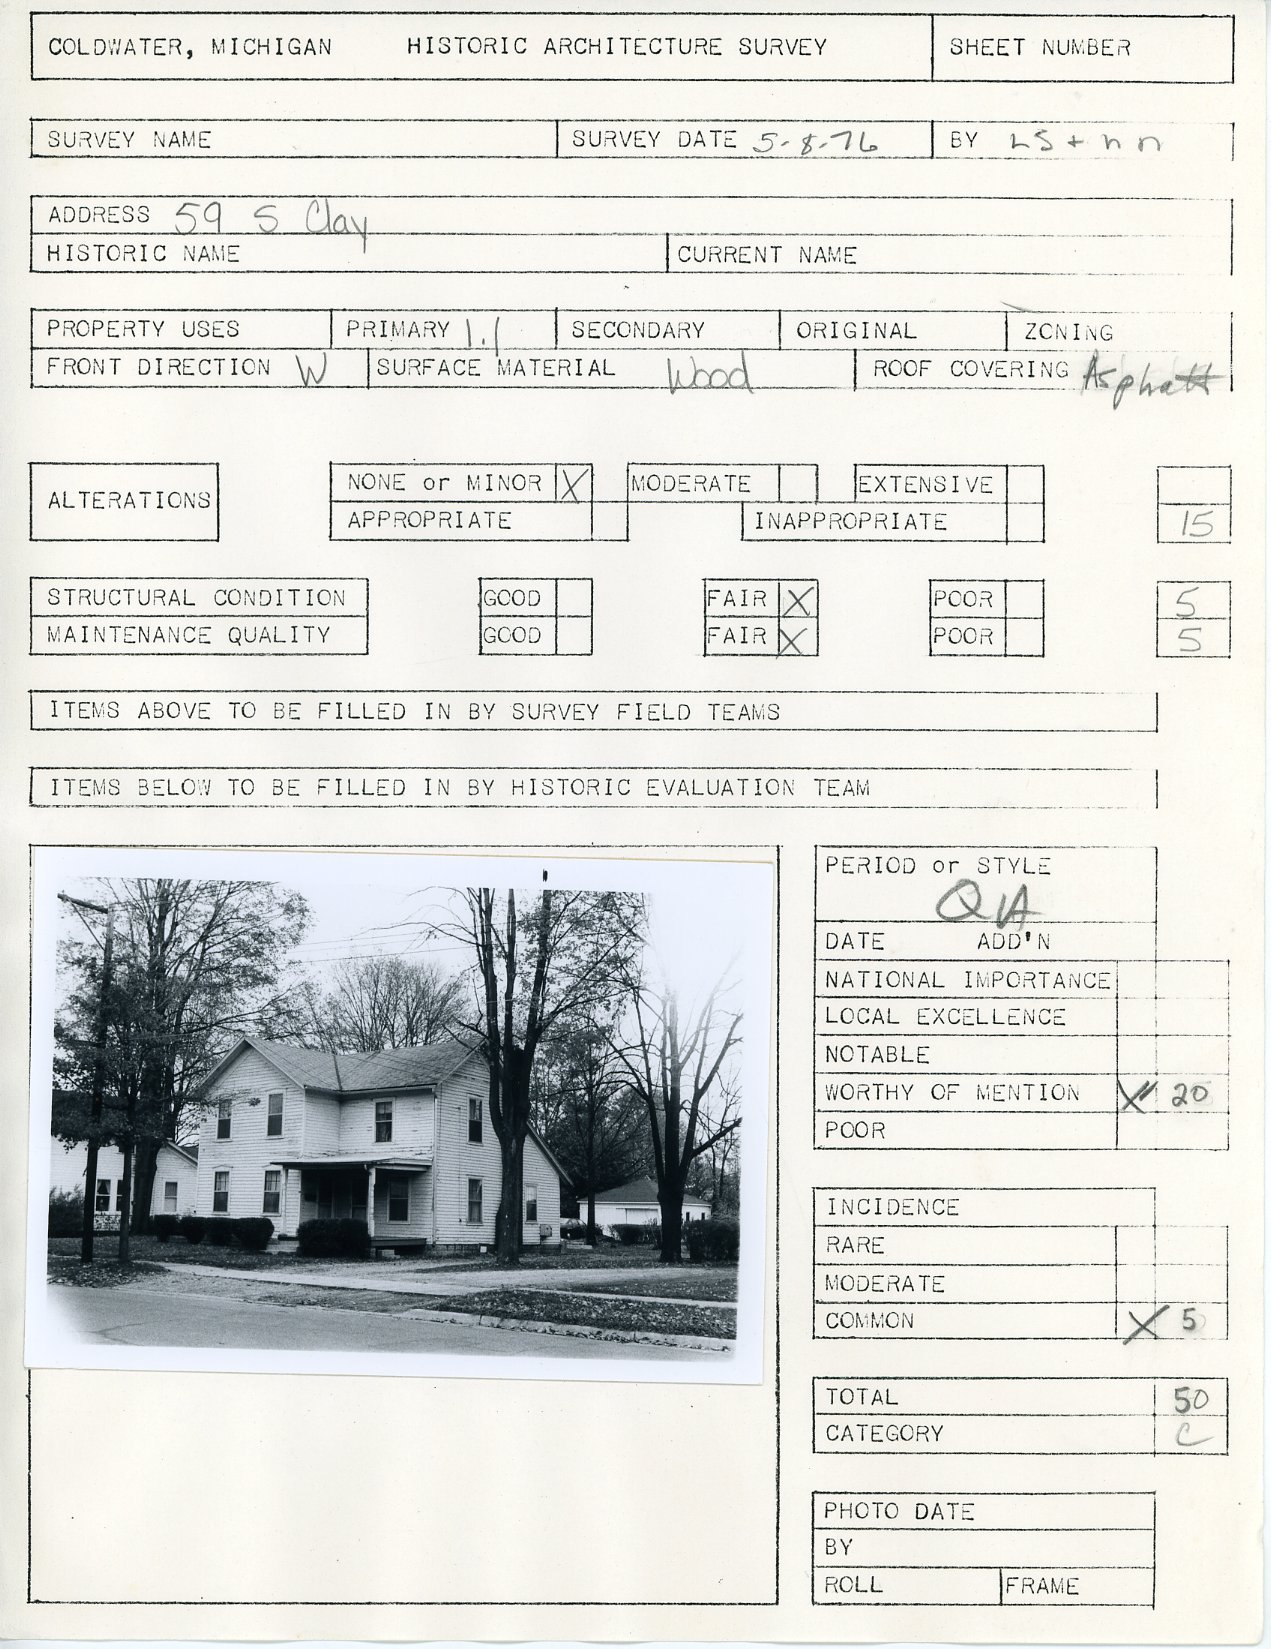 COLDWATER, MICHIGAN HISTORIC ARCHITECTURE SURVEY SHEET NUMBER
SURVEY NAME SURVEY DATE 5-8-76 BY LS + nn
ADDRESS 59 S Clay
HISTORIC NAME CURRENT NAME
PROPERTY USES PRIMARY 1.1 SECONDARY ORIGINAL ZONING
FRONT DIRECTION W SURFACE MATERIAL Wood ROOF COVERING Asphalt
ALTERATIONS NONE or MINOR X MODERATE EXTENSIVE
APPROPRIATE INAPPROPRIATE 15
STRUCTURAL CONDITION GOOD FAIR X POOR 5
MAINTENANCE QUALITY GOOD FAIR X POOR 5
ITEMS ABOVE TO BE FILLED IN BY SURVEY FIELD TEAMS
ITEMS BELOW TO BE FILLED IN BY HISTORIC EVALUATION TEAM
PERIOD or STYLE
QA
DATE ADD'N
NATIONAL IMPORTANCE
LOCAL EXCELLENCE
NOTABLE
WORTHY OF MENTION X 20
POOR
INCIDENCE
RARE
MODERATE
COMMON X 5
TOTAL 50
CATEGORY C
PHOTO DATE
BY
ROLL FRAME